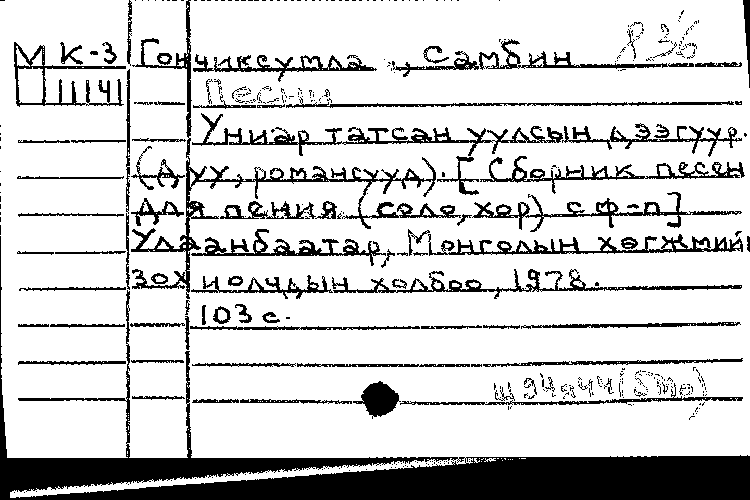 М К-3 Гончиксумла, Самбин 836
11141 Песни
Униар татсан уулсын дээгүүр.
(Дуу, романсууд). [Сборник песен
для пения (соло, хор) с ф-п]
Улаанбаатар, Монголын хөгжмийн
зохиолчдын холбоо, 1978.
103 с.
Щ94я44(5Мо)